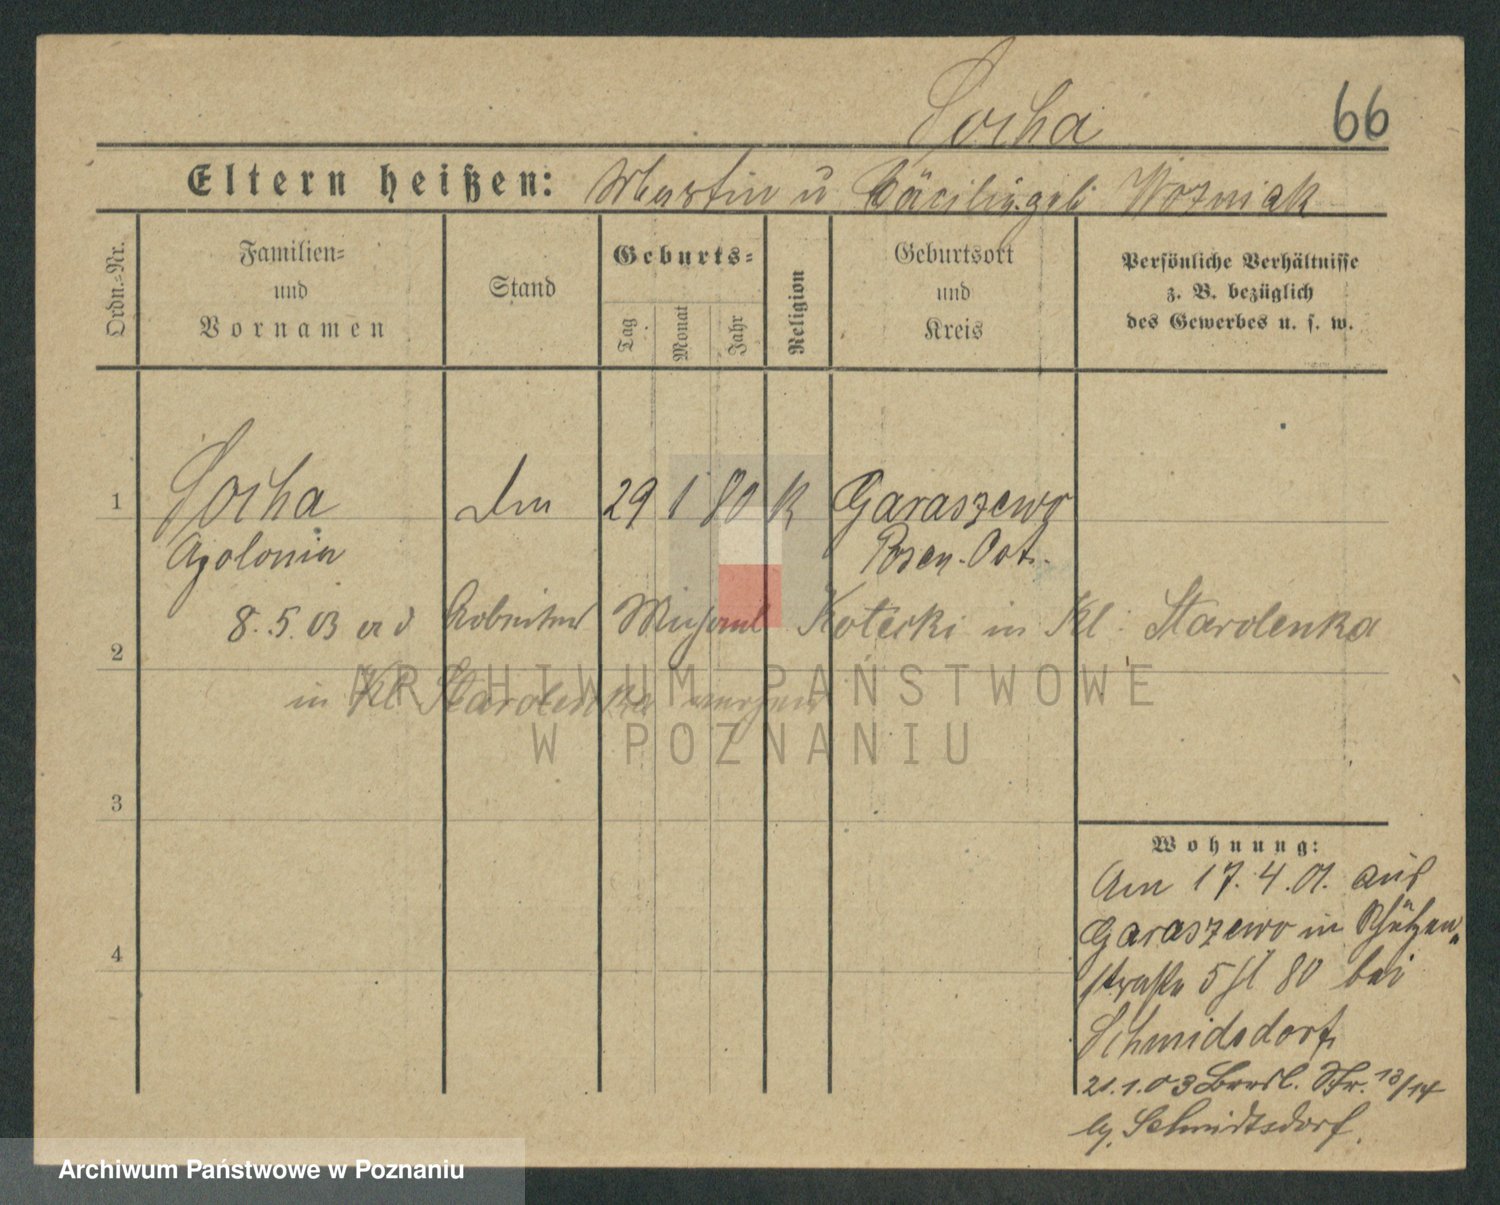 Socha
66
Eltern heißen: Martin u Cäcilie geb Wozniak
Ordn.-Nr.
Familien-
und
Vornamen
Stand
Geburts-
Tag
Monat
Jahr
Religion
Geburtsort
und
Kreis
Persönliche Verhältnisse
z. B. bezüglich
des Gewerbes u. s. w.
1 Socha 29 1 80 K Garaszewo
Apolonia Posen. Ost.
8. 5. 03 Michael Kotecki in Kl. Starolenka
2
in Kl Starolenka
3
4
Wohnung:
Am 17. 4. 01. aus
Garaszewo in Schützen-
straße 5 bei
Schmidsdorf
21. 1. 03 Bresl. Str. 13/14
Schmidtsdorf.
ARCHIWUM PAŃSTWOWE
W POZNANIU
Archiwum Państwowe w Poznaniu